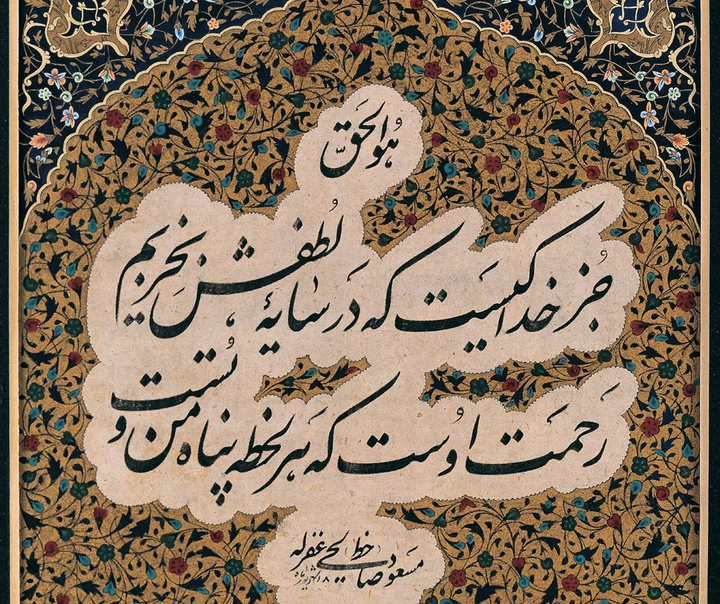 هُوالحَقّ
جُز خدا کیست که در سایهٔ لُطفش بخزیم
رَحمت اوست که هر لحظه پناه من و تُست
مسعود غفرله